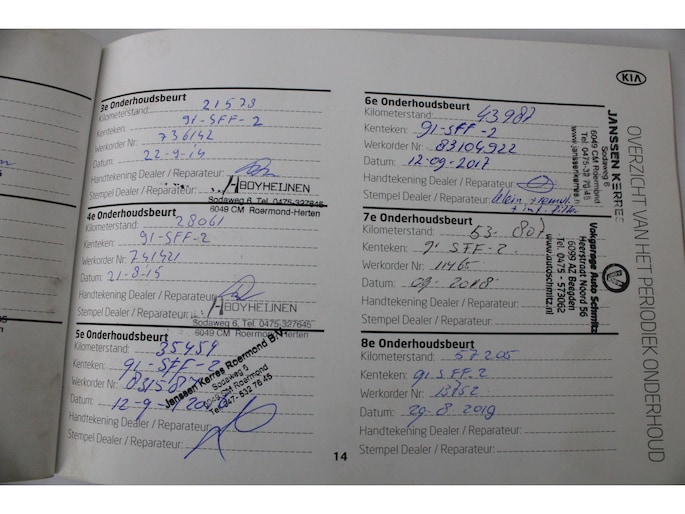 3e Onderhoudsbeurt
Kilometerstand: 21578
Kenteken: 91-SFF-2
Werkorder Nr: 736142
Datum: 22-9-14
Handtekening Dealer / Reparateur:
Stempel Dealer / Reparateur:
ABOYHEIJNEN
Sodaweg 6, Tel. 0475-327645
6049 CM Roermond-Herten
4e Onderhoudsbeurt
Kilometerstand: 28061
Kenteken: 91-SFF-2
Werkorder Nr: 741421
Datum: 21-8-15
Handtekening Dealer / Reparateur:
Stempel Dealer / Reparateur:
ABOYHEIJNEN
Sodaweg 6, Tel. 0475-327645
6049 CM Roermond-Herten
5e Onderhoudsbeurt
Kilometerstand: 35459
Kenteken: 91-SFF-2
Werkorder Nr:
Datum: 12-9
Handtekening Dealer / Reparateur:
Stempel Dealer / Reparateur:
Janssen Kerres Roermond B.V.
Sodaweg 6
6049 CM Roermond
6e Onderhoudsbeurt
Kilometerstand: 43987
Kenteken: 91-SFF-2
Werkorder Nr: 83104922
Datum: 12-09-2017
Handtekening Dealer / Reparateur:
Stempel Dealer / Reparateur: klein
JANSSEN KERRES
Sodaweg 6
6049 CM Roermond
7e Onderhoudsbeurt
Kilometerstand: 53.807
Kenteken: 91 SFF-2
Werkorder Nr: 11465
Datum: 09-2018
Handtekening Dealer / Reparateur:
Stempel Dealer / Reparateur:
Vakgarage Auto Schmitz
Heerstraat Noord 56
6099 AZ Beegden
Tel. 0475 - 573062
www.autoschmitz.nl
8e Onderhoudsbeurt
Kilometerstand: 57205
Kenteken: 91 SFF-2
Werkorder Nr: 13752
Datum: 29-8-2019
Handtekening Dealer / Reparateur:
Stempel Dealer / Reparateur:
14
KIA
OVERZICHT VAN HET PERIODIEK ONDERHOUD